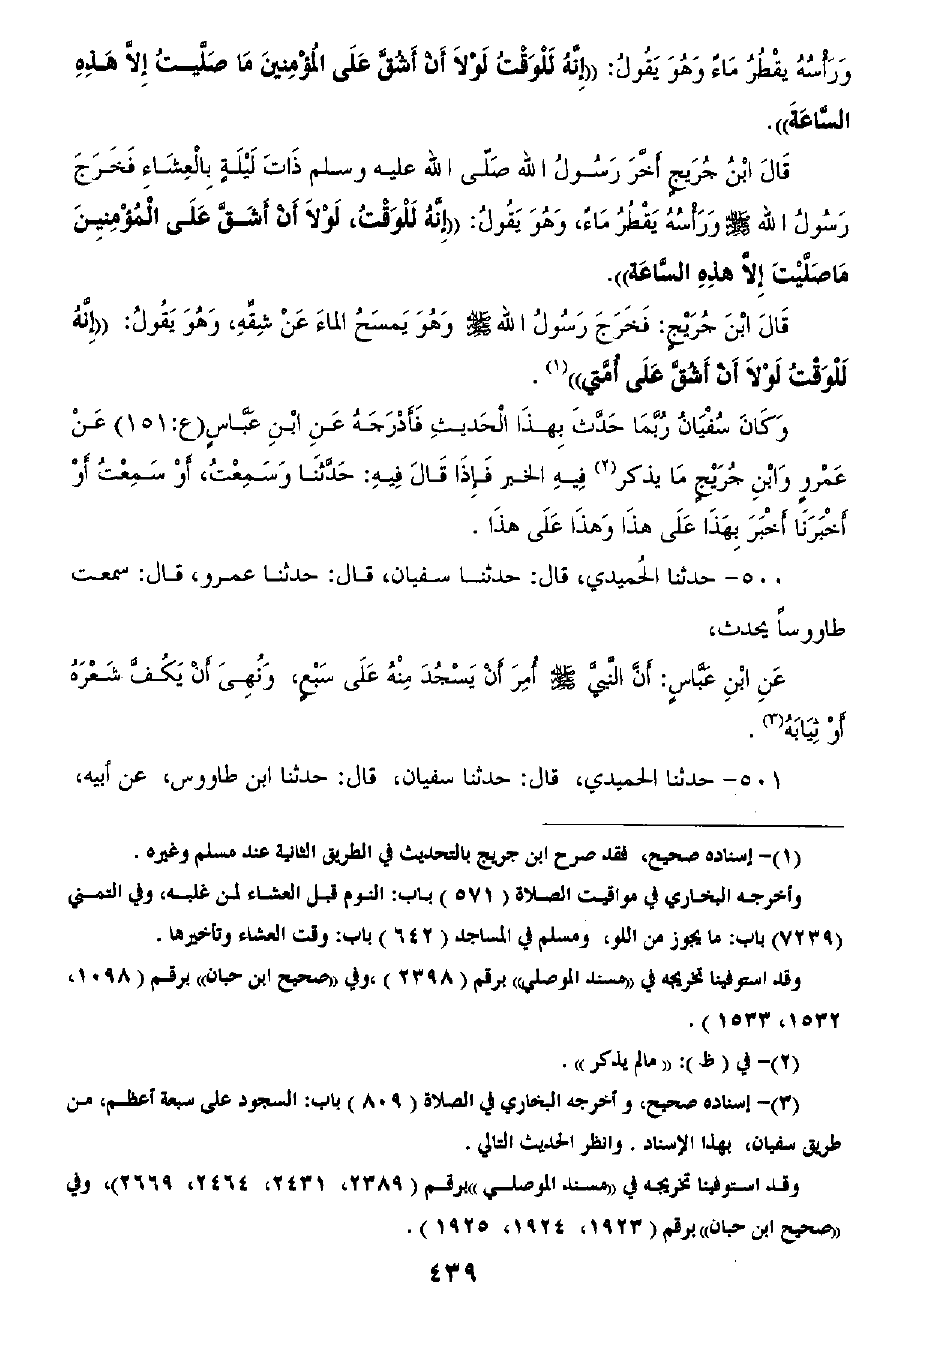 وَرَأْسُهُ يقْطُرُ مَاءً وَهُوَ يَقُولُ: ((إِنَّهُ لَلْوَقْتُ لَوْلاَ أَنْ أَشُقَّ عَلَى الْمُؤْمِنِينَ مَا صَلَّيـتُ إِلاَّ هَـذِهِ
السَّاعَةَ)).
قَالَ ابْنُ جُرَيجٍ أَخَّرَ رَسُـولُ الله صَلّى الله عليـه وسـلم ذَاتَ لَيْلَةٍ بِالْعِشَاءِ فَخَـرَجَ
رَسُولُ الله ﷺ وَرَأْسُهُ يَقْطُرُ مَاءً، وَهُوَ يَقُولُ: ((إِنَّهُ لَلْوَقْتُ، لَوْلاَ أَنْ أَشُقَّ عَلَـى الْمُؤْمِنِيـنَ
مَاصَلَّيْتَ إِلاَّ هذِهِ السَّاعَة)).
قَالَ ابْنَ جُرَيْجٍ: فَخَرَجَ رَسُولُ الله ﷺ وَهُوَ يَمسَحُ الماءَ عَنْ شِقِّهِ، وَهُوَ يَقُولُ: ((إِنَّهُ
لَلْوَقْتُ لَوْلاَ أَنْ أَشُقَّ عَلَى أُمَّتِي))(١) .
وَكَانَ سُفْيَانُ رُبَّمَا حَدَّثَ بِهـذَا الْحَديـثِ فَأَدْرَجَهُ عَـنِ ابْـنِ عَبَّـاسٍ(ع:١٥١) عَـنْ
عَمْروٍ وَابْنِ جُرَيْجٍ مَا يذكر(٢) فِيـهِ الخبر فَـإِذَا قَـالَ فِيـهِ: حَدَّثَنَـا وَسَـمِعْتُ، أَوْ سَـمِعْتُ أَوْ
أَخْبَرَنَا أَخْبَرَ بِهَذَا عَلَى هذَا وَهذَا عَلَى هذَا .
٥٠٠- حدثنا الحُميدي، قال: حدثنـا سـفيان، قـال: حدثنـا عمـرو، قـال: سمعـت
طاووساً يحدث،
عَنِ ابْنِ عَبَّاسٍ: أَنَّ النَّبِيَّ ﷺ أُمِرَ أَنْ يَسْجُدَ مِنْهُ عَلَى سَبْعٍ، وَنُهِىَ أَنْ يَكُـفَّ شَـعْرَهُ
أَوْ ثِيَابَهُ(٣) .
٥٠١- حدثنا الحميدي، قال: حدثنا سفيان، قال: حدثنا ابن طاووس، عن أبيه،
(١)- إسناده صحيح، فقد صرح ابن جريج بالتحديث في الطريق الثانية عند مسلم وغيره .
وأخرجـه البخـاري في مواقيت الصـلاة ( ٥٧١ ) بـاب: النـوم قبـل العشـاء لمـن غلبـه، وفي التمـني
(٧٢٣٩) باب: ما يجوز من اللو، ومسلم في المساجد ( ٦٤٢ ) باب: وقت العشاء وتأخيرها .
وقد استوفينا تخريجه في ((مسند الموصلي)) برقم ( ٢٣٩٨ ) ،وفي ((صحيح ابن حبان)) برقـم ( ١٠٩٨،
١٥٣٢، ١٥٣٣ ) .
(٢)- في ( ظ ): (( مالم يذكر )) .
(٣)- إسناده صحيح، و أخرجه البخاري في الصلاة ( ٨٠٩ ) باب: السجود على سبعة أعظـم، مـن
طريق سفيان، بهذا الإسناد . وانظر الحديث التالي .
وقـد استـوفينا تخريجـه في ((مسند الموصلـي ))برقـم ( ٢٣٨٩، ٢٤٣١، ٢٤٦٤، ٢٦٦٩)، وفي
((صحيح ابن حبان)) برقم ( ١٩٢٣، ١٩٢٤، ١٩٢٥ ) .
٤٣٩